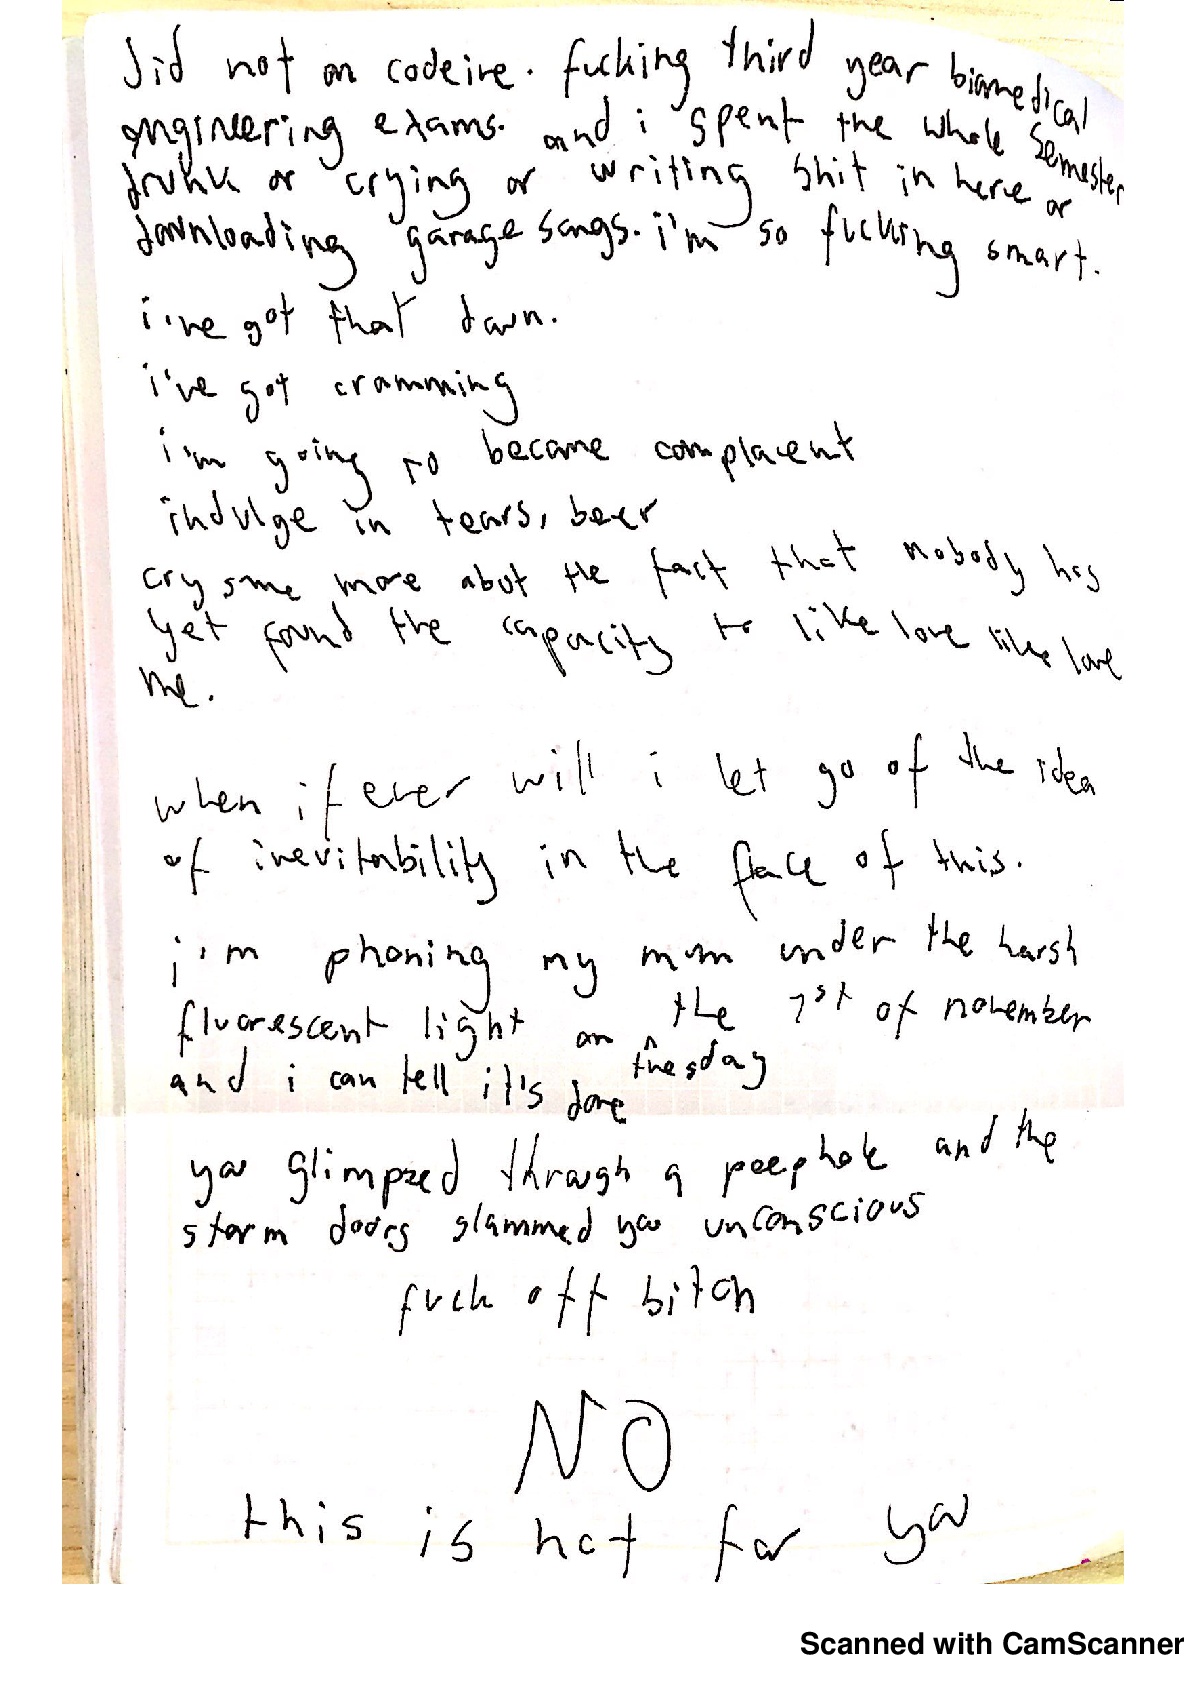 did not on codeine. fucking third year biomedical
engineering exams. and i spent the whole semester
drunk or crying or writing shit in here or
downloading garage songs. i'm so fucking smart.
i've got that down.
i've got cramming
i'm going to become complacent
indulge in tears, beer
cry some more abut the fact that nobody has
yet found the capacity to like love like love
me.
when if ever will i let go of the idea
of inevitability in the face of this.
i'm phoning my mum under the harsh
fluorescent light on the 1st of november
tuesday
and i can tell it's done
you glimpzed through a peephole and the
storm doors slammed you unconscious
fuck off bitch
NO
this is not for you
Scanned with CamScanner